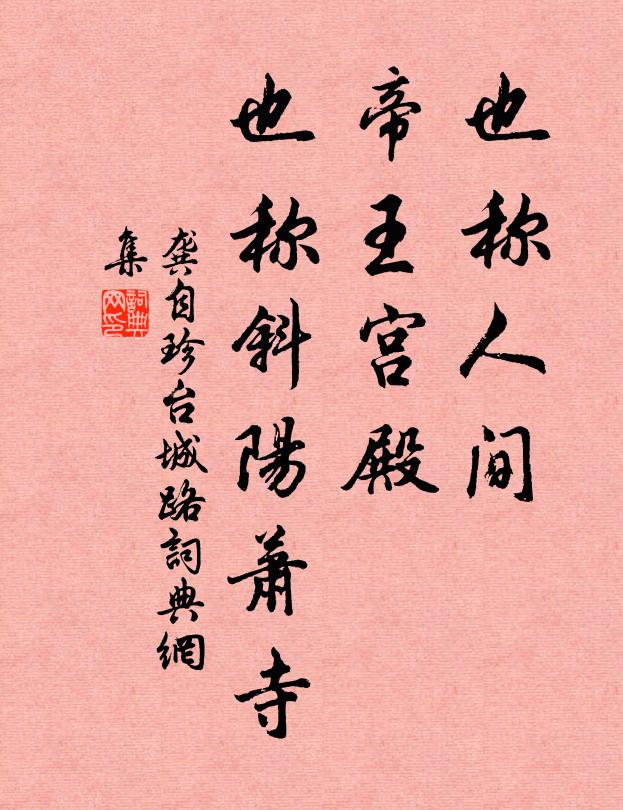 也称人间
帝王宫殿
也称斜陽蕭寺
龚自珍台城路詞典網
集
詞典网印